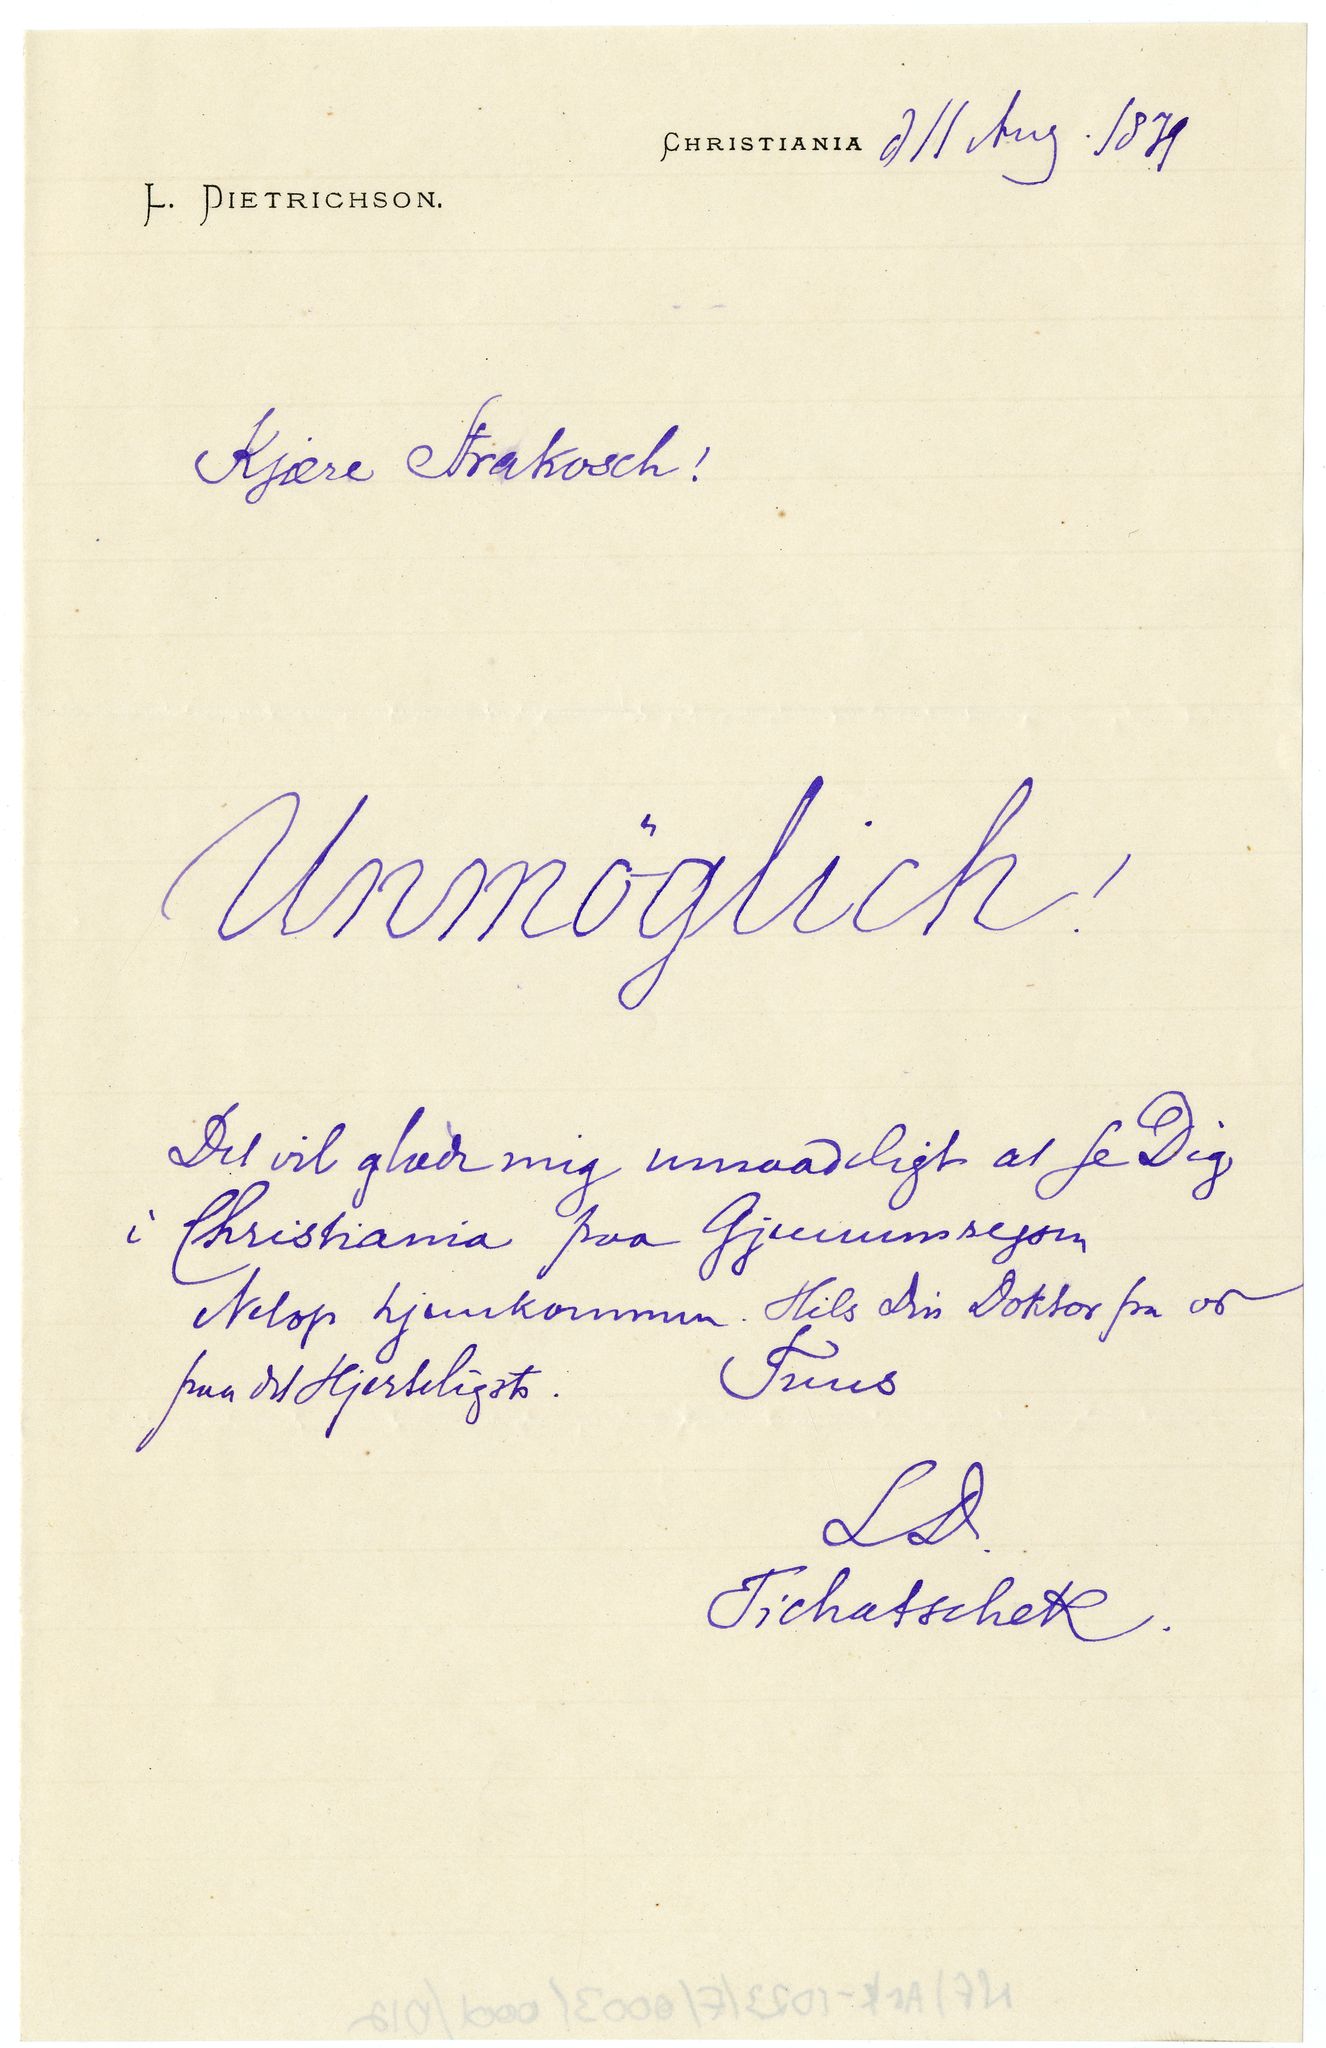 CHRISTIANIA d 11 Aug. 1879
L. DIETRICHSON.
Kjære Strakosch!
Unmöglich!
Det vil glæde mig umaadeligt at se Dig
i Christiania paa Gjennemrejsen
Netop hjemkommen. Hils Din Doktor fra os
paa det Hjerteligste.
Tuus
LD.
Tichatschek.
NF/Ark-1023/E/0003/0001/012